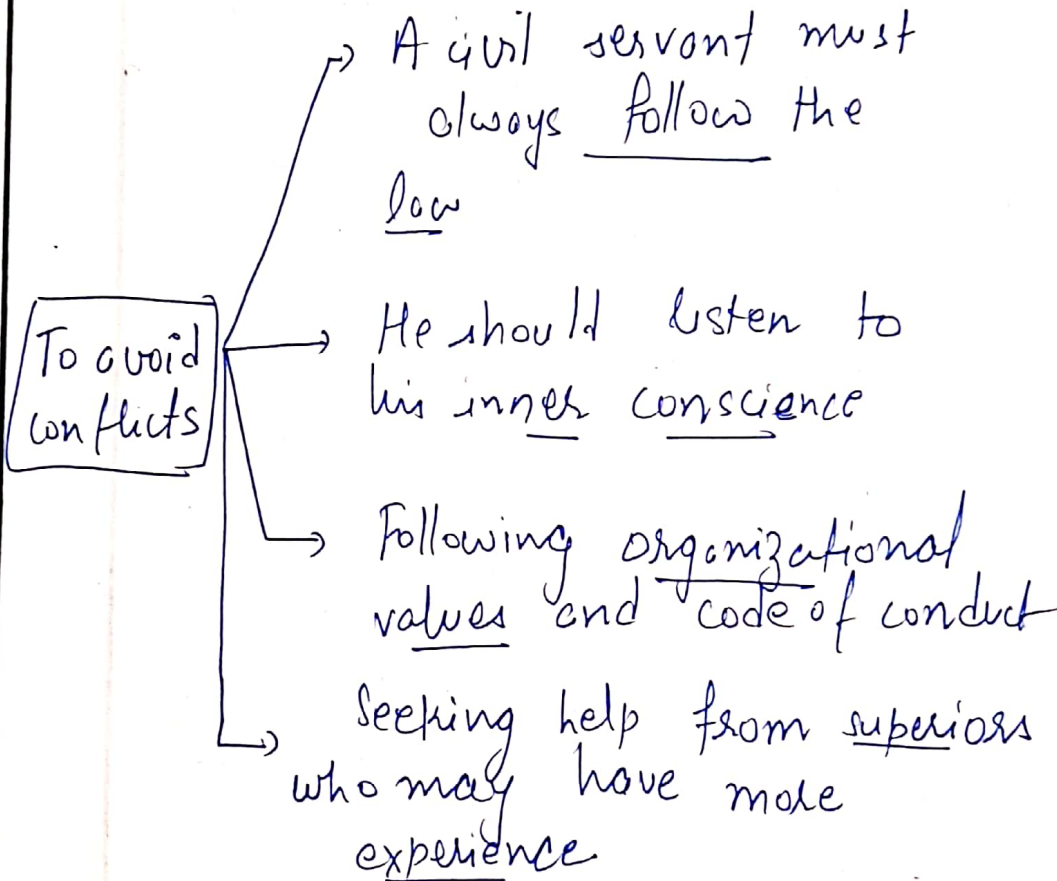 A civil servant must
always follow the
law
To avoid
conflicts
He should listen to
his inner conscience
Following organizational
values and code of conduct
Seeking help from superiors
who may have more
experience.